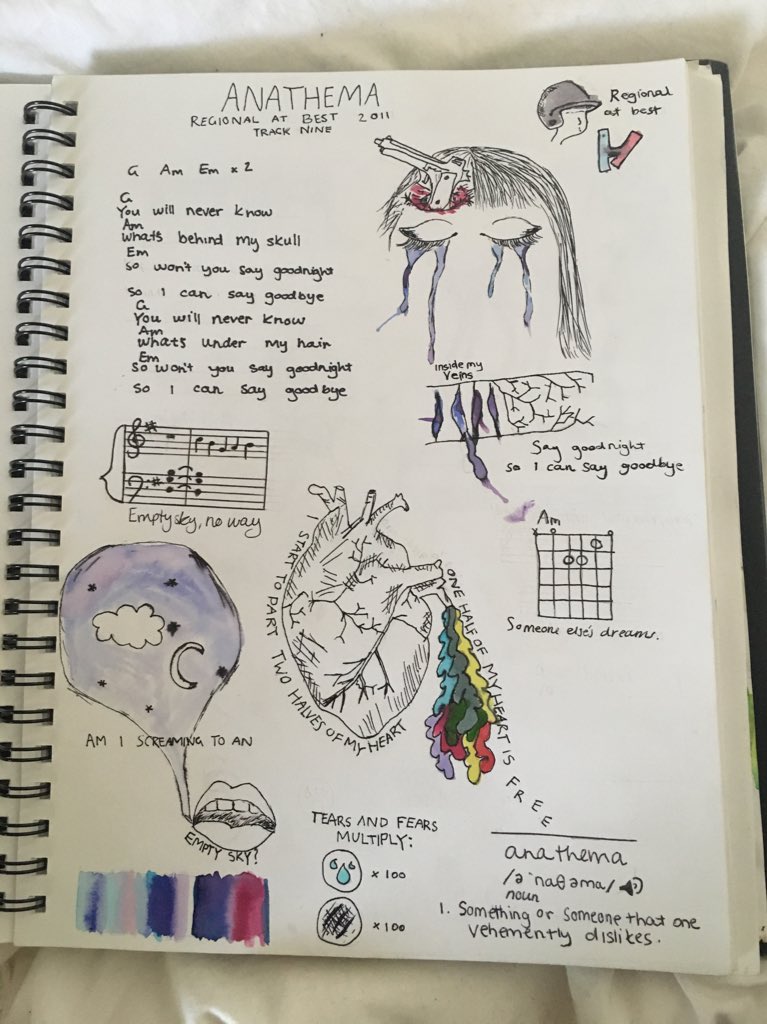 ANATHEMA
REGIONAL AT BEST 2011
TRACK NINE
Regional
at best
G Am Em x 2
G
You will never know
Am
whats behind my skull
Em
so won't you say goodnight
so I can say goodbye
G
You will never know
Am
whats under my hair
Em
so won't you say goodnight
so I can say goodbye
inside my
veins
Say goodnight
so I can say goodbye
Empty sky, no way
Am
x o
Someone else's dreams.
START TO PART TWO HALVES OF MY HEART
ONE HALF OF MY HEART IS FREE
AM I SCREAMING TO AN
EMPTY SKY?
TEARS AND FEARS
MULTIPLY:
x 100
x 100
anathema
/əˈnaθəma/
noun
1. Something or someone that one
vehemently dislikes.